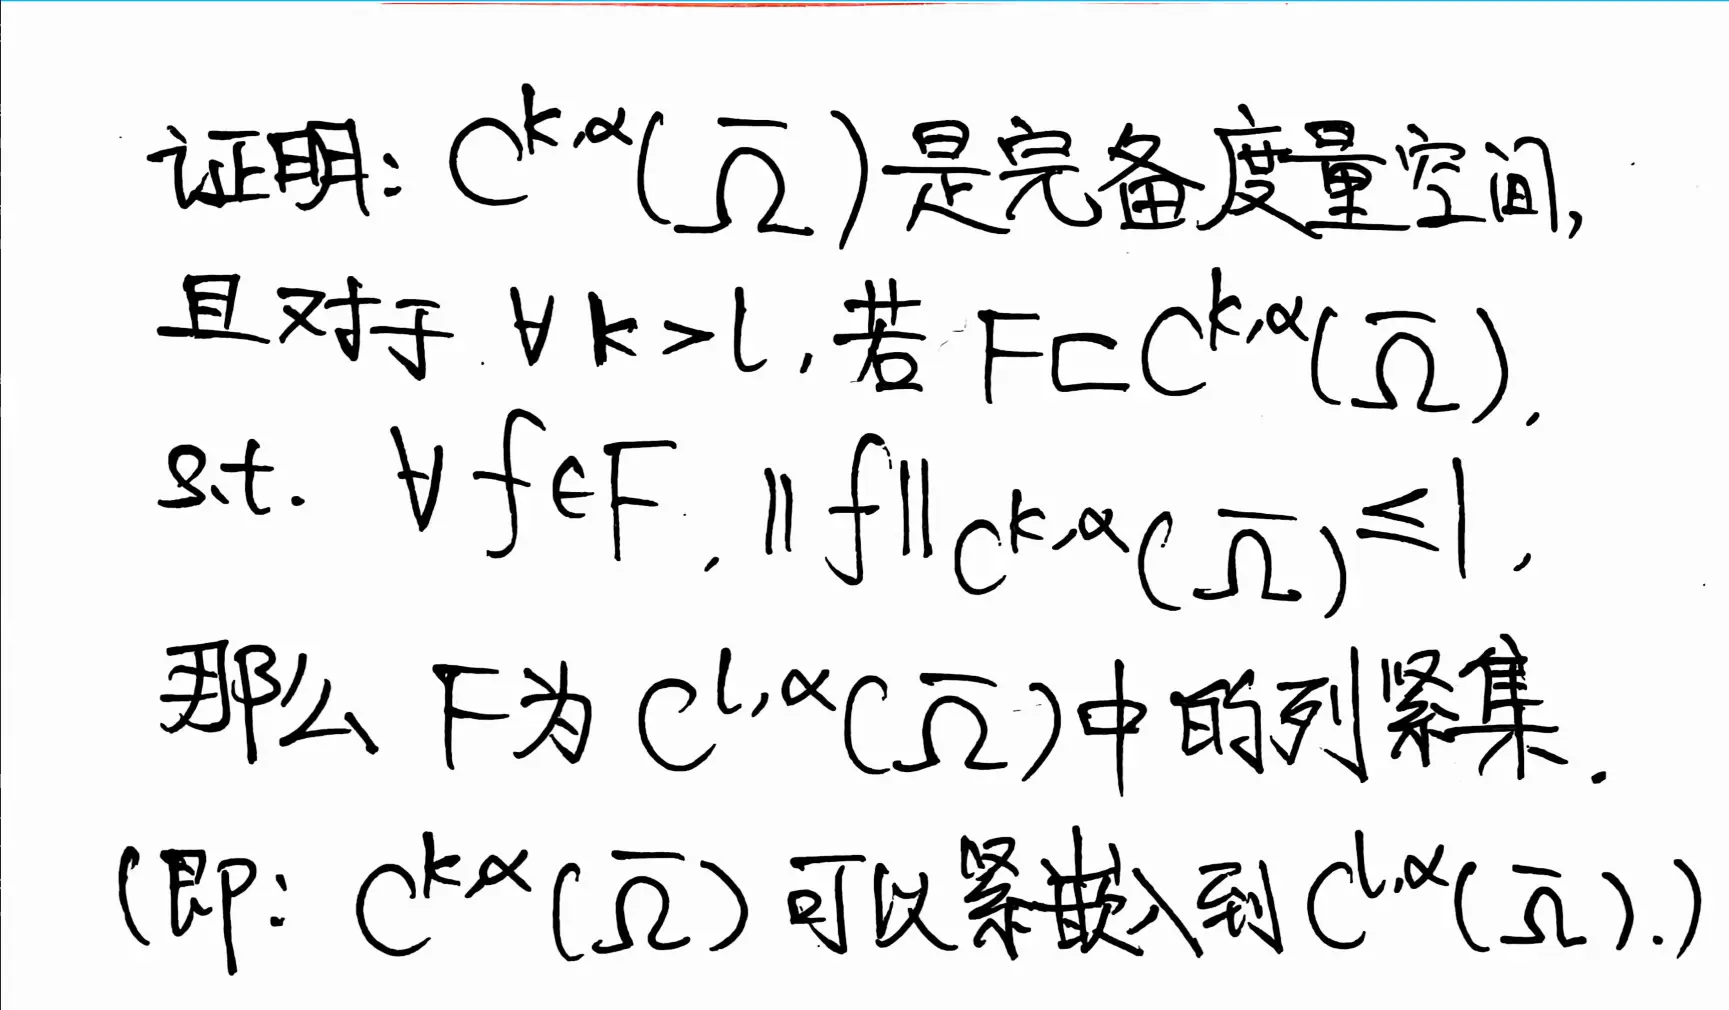 证明: C^{k,α}(Ω̅)是完备度量空间,
且对于 ∀k>l, 若 F⊏C^{k,α}(Ω̅),
s.t. ∀f∈F, ‖f‖_{C^{k,α}(Ω̅)}≤1,
那么 F为 C^{l,α}(Ω̅)中的列紧集.
(即: C^{k,α}(Ω̅)可以紧嵌入到C^{l,α}(Ω̅).)